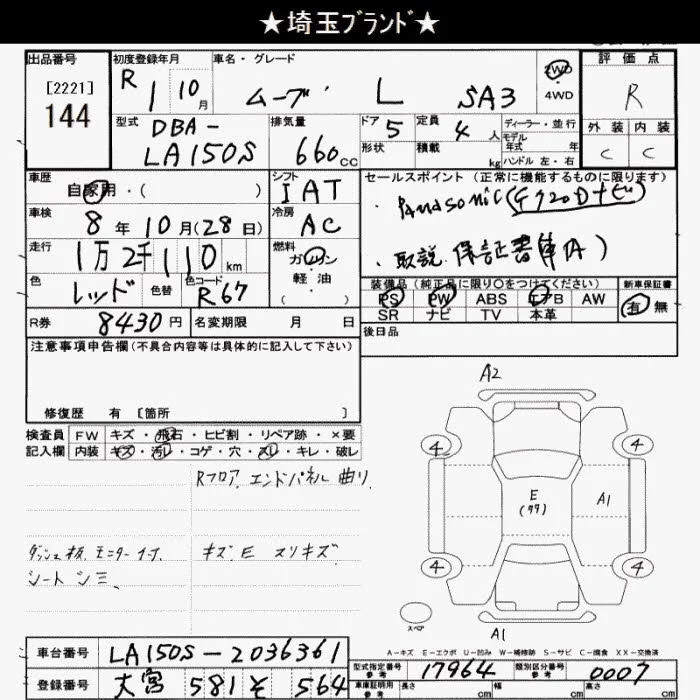 ★埼玉ブランド★
出品番号
[2221]
144
初度登録年月
R 1 10月
車名・グレード
ムーブ L SA3
2WD
4WD
評価点
R
外装 内装
C C
型式
DBA-
LA150S
排気量
660cc
ドア 5
形状
定員 4人
積載 kg
ディーラー・並行
モデル
年式 年
ハンドル 左・右
車歴
自家用・( )
シフト
IAT
車検
8年10月(28日)
冷房
AC
走行
1万2千110km
燃料
ガソリン
・
軽油
( )
色
レッド
色替
色コード
R67
R券 8430円
名変期限 月 日
セールスポイント(正常に機能するものに限ります)
・Panasonic
・取説.保証書
装備品(純正品に限り○をつけてください)
PS PW ABS エアB AW
SR ナビ TV 本革
新車保証書
有 無
後日品
注意事項申告欄(不具合内容等は具体的に記入して下さい)
修復歴 有 [箇所 ]
検査員
記入欄
FW キズ・飛石・ヒビ割・リペア跡・×要
内装 キズ・汚レ・コゲ・穴・スレ・キレ・破レ
Rフロア.エンドパネル 曲り.
ダッシュ板.モニター
シート シミ.
キズ.E スリキズ
A2
4 4
E
A1
4 4
スペア
A1
A-キズ E-エクボ U-凹み W-補修跡 S-サビ C-腐食 XX-交換済
車台番号 LA150S-2036361
登録番号 大宮 581 そ 564
型式指定番号
参考
17964
類別区分番号
参考
0007
車庫証明用
参考
長さ cm 幅 cm 高さ cm